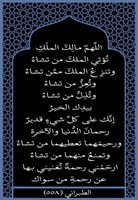 اللّهمّ مالكَ الملْكِ
تُؤتي الملكَ من تشاءُ
وتنزعُ الملكَ ممّن تشاءُ
وتُعِزُّ من تشاءُ
وتُذِلُّ من تشاءُ
بيدِكَ الخيرُ
إنّك على كلِّ شيءٍ قديرٌ
رحمانَ الدنيا والآخرةِ
ورحيمَهما تعطيهما من تشاءُ
وتمنعُ منهما من تشاءُ
ارحمْني رحمةً تُغنيني بها
عن رحمةِ من سواك
الطبراني (٥٥٨)